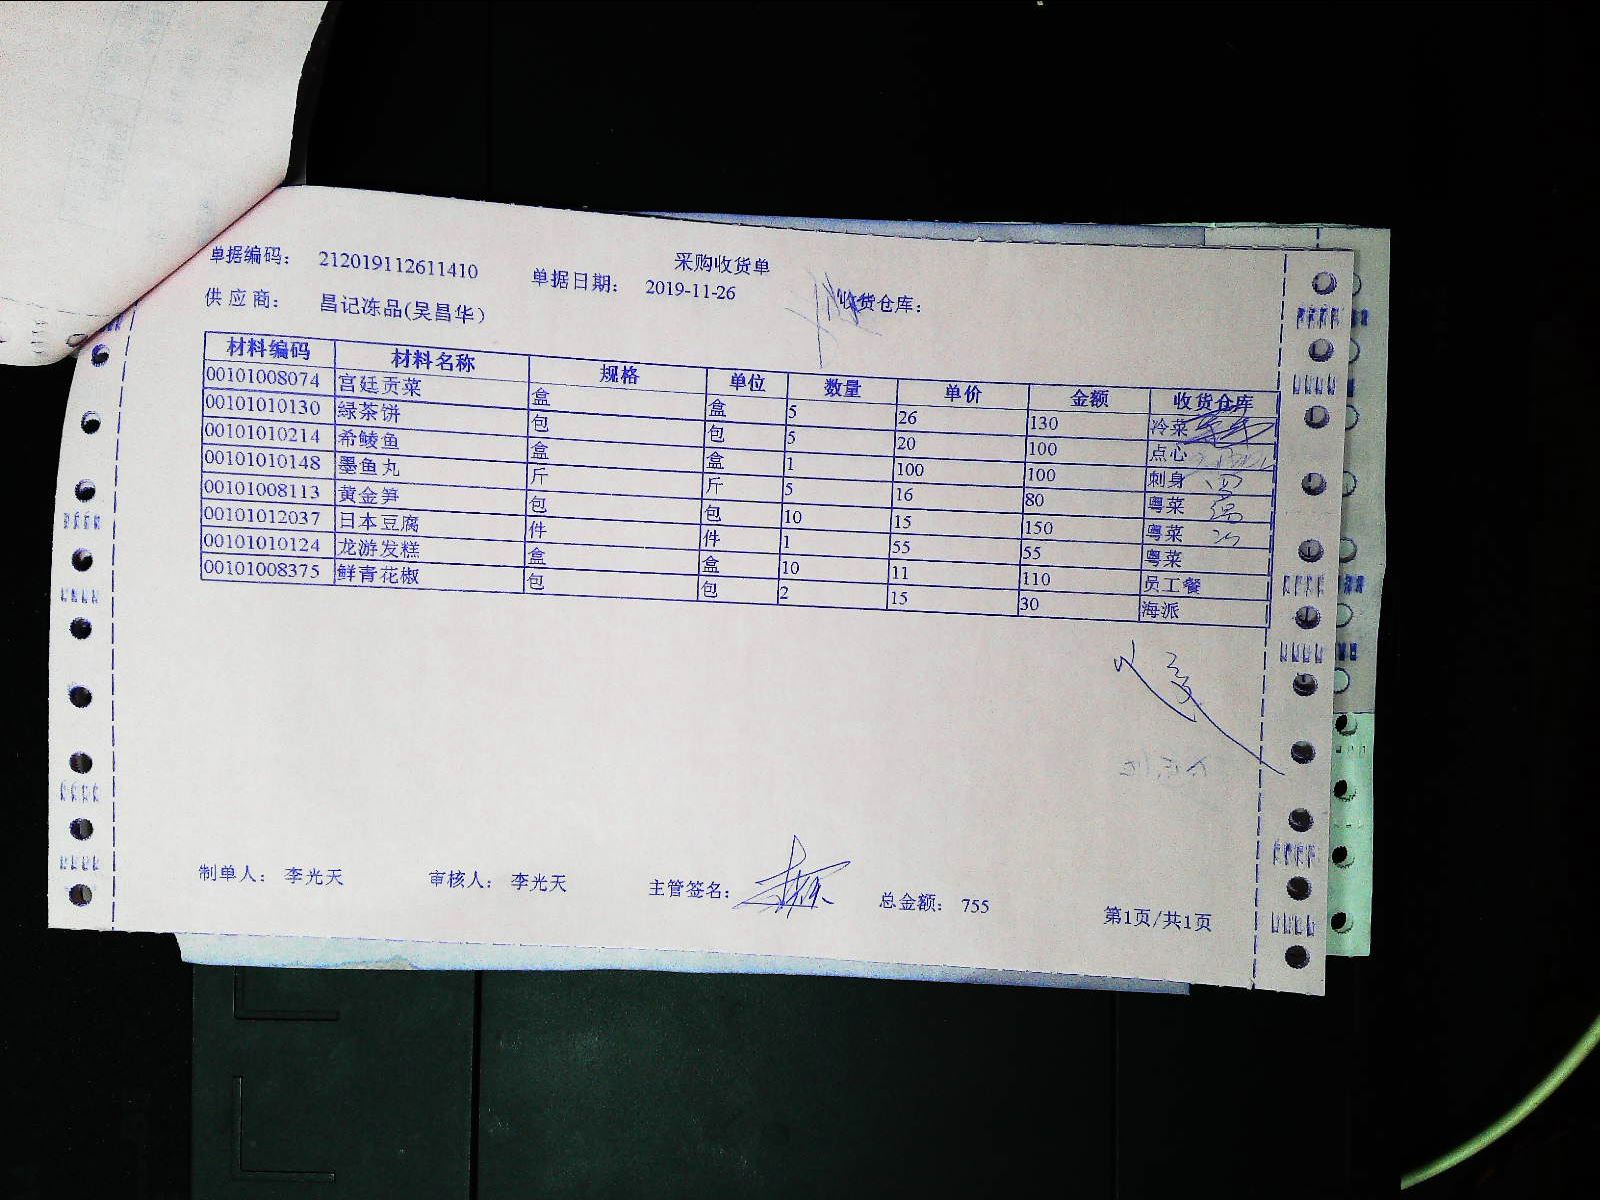 采购收货单
单据编码： 212019112611410 单据日期： 2019-11-26 收货仓库：
供应商： 昌记冻品(吴昌华）
材料编码 材料名称 规格 单位 数量 单价 金额 收货仓库
00101008074 宫廷贡菜 盒 盒 5 26 130 冷菜
00101010130 绿茶饼 包 包 5 20 100 点心
00101010214 希鲮鱼 盒 盒 1 100 100 刺身
00101010148 墨鱼丸 斤 斤 5 16 80 粤菜
00101008113 黄金笋 包 包 10 15 150 粤菜
00101012037 日本豆腐 件 件 1 55 55 粤菜
00101010124 龙游发糕 盒 盒 10 11 110 员工餐
00101008375 鲜青花椒 包 包 2 15 30 海派
制单人： 李光天 审核人： 李光天 主管签名： 总金额： 755 第1页/共1页